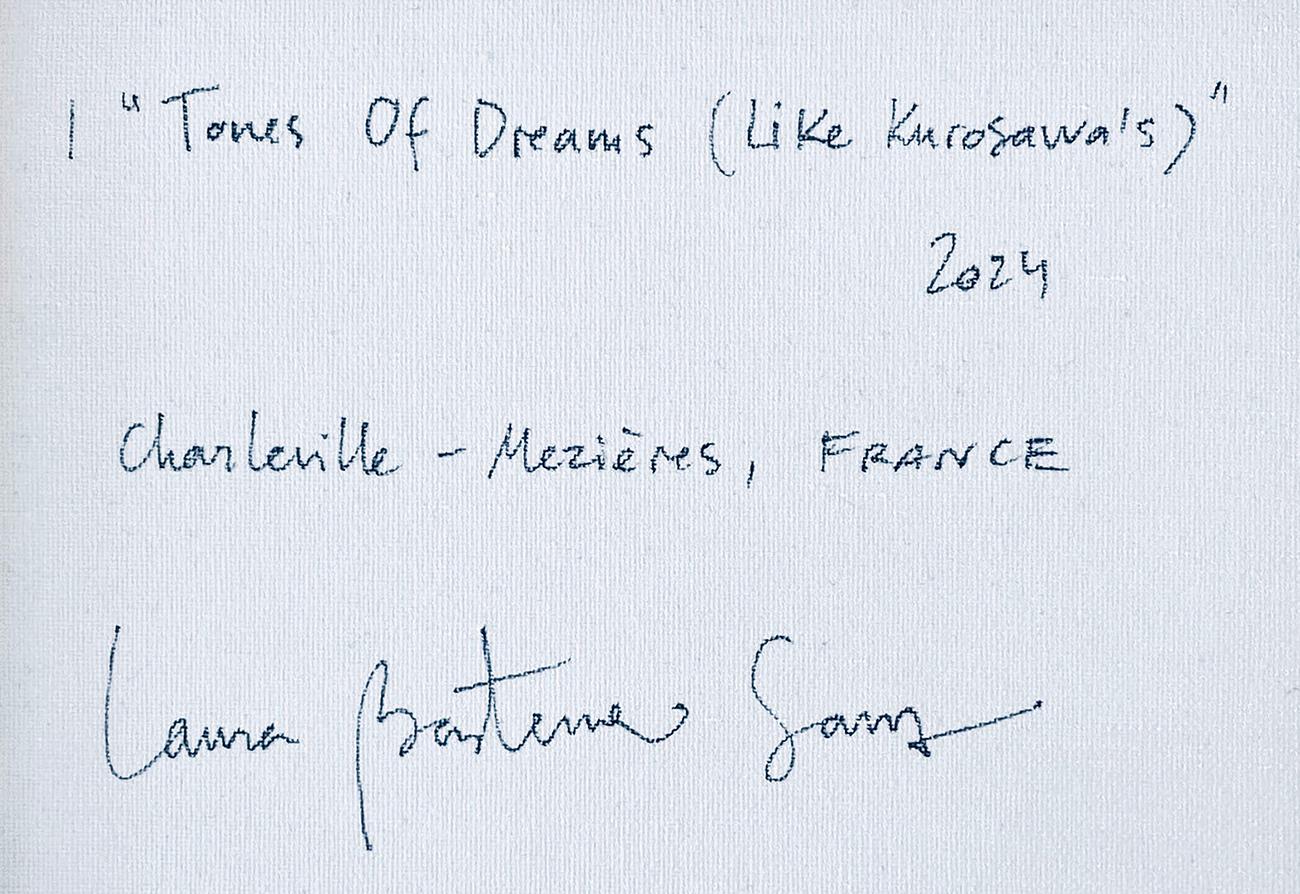 | "Tones Of Dreams (Like Kurosawa's)"
2024
Charleville - Mezières, FRANCE
Laura Sanz